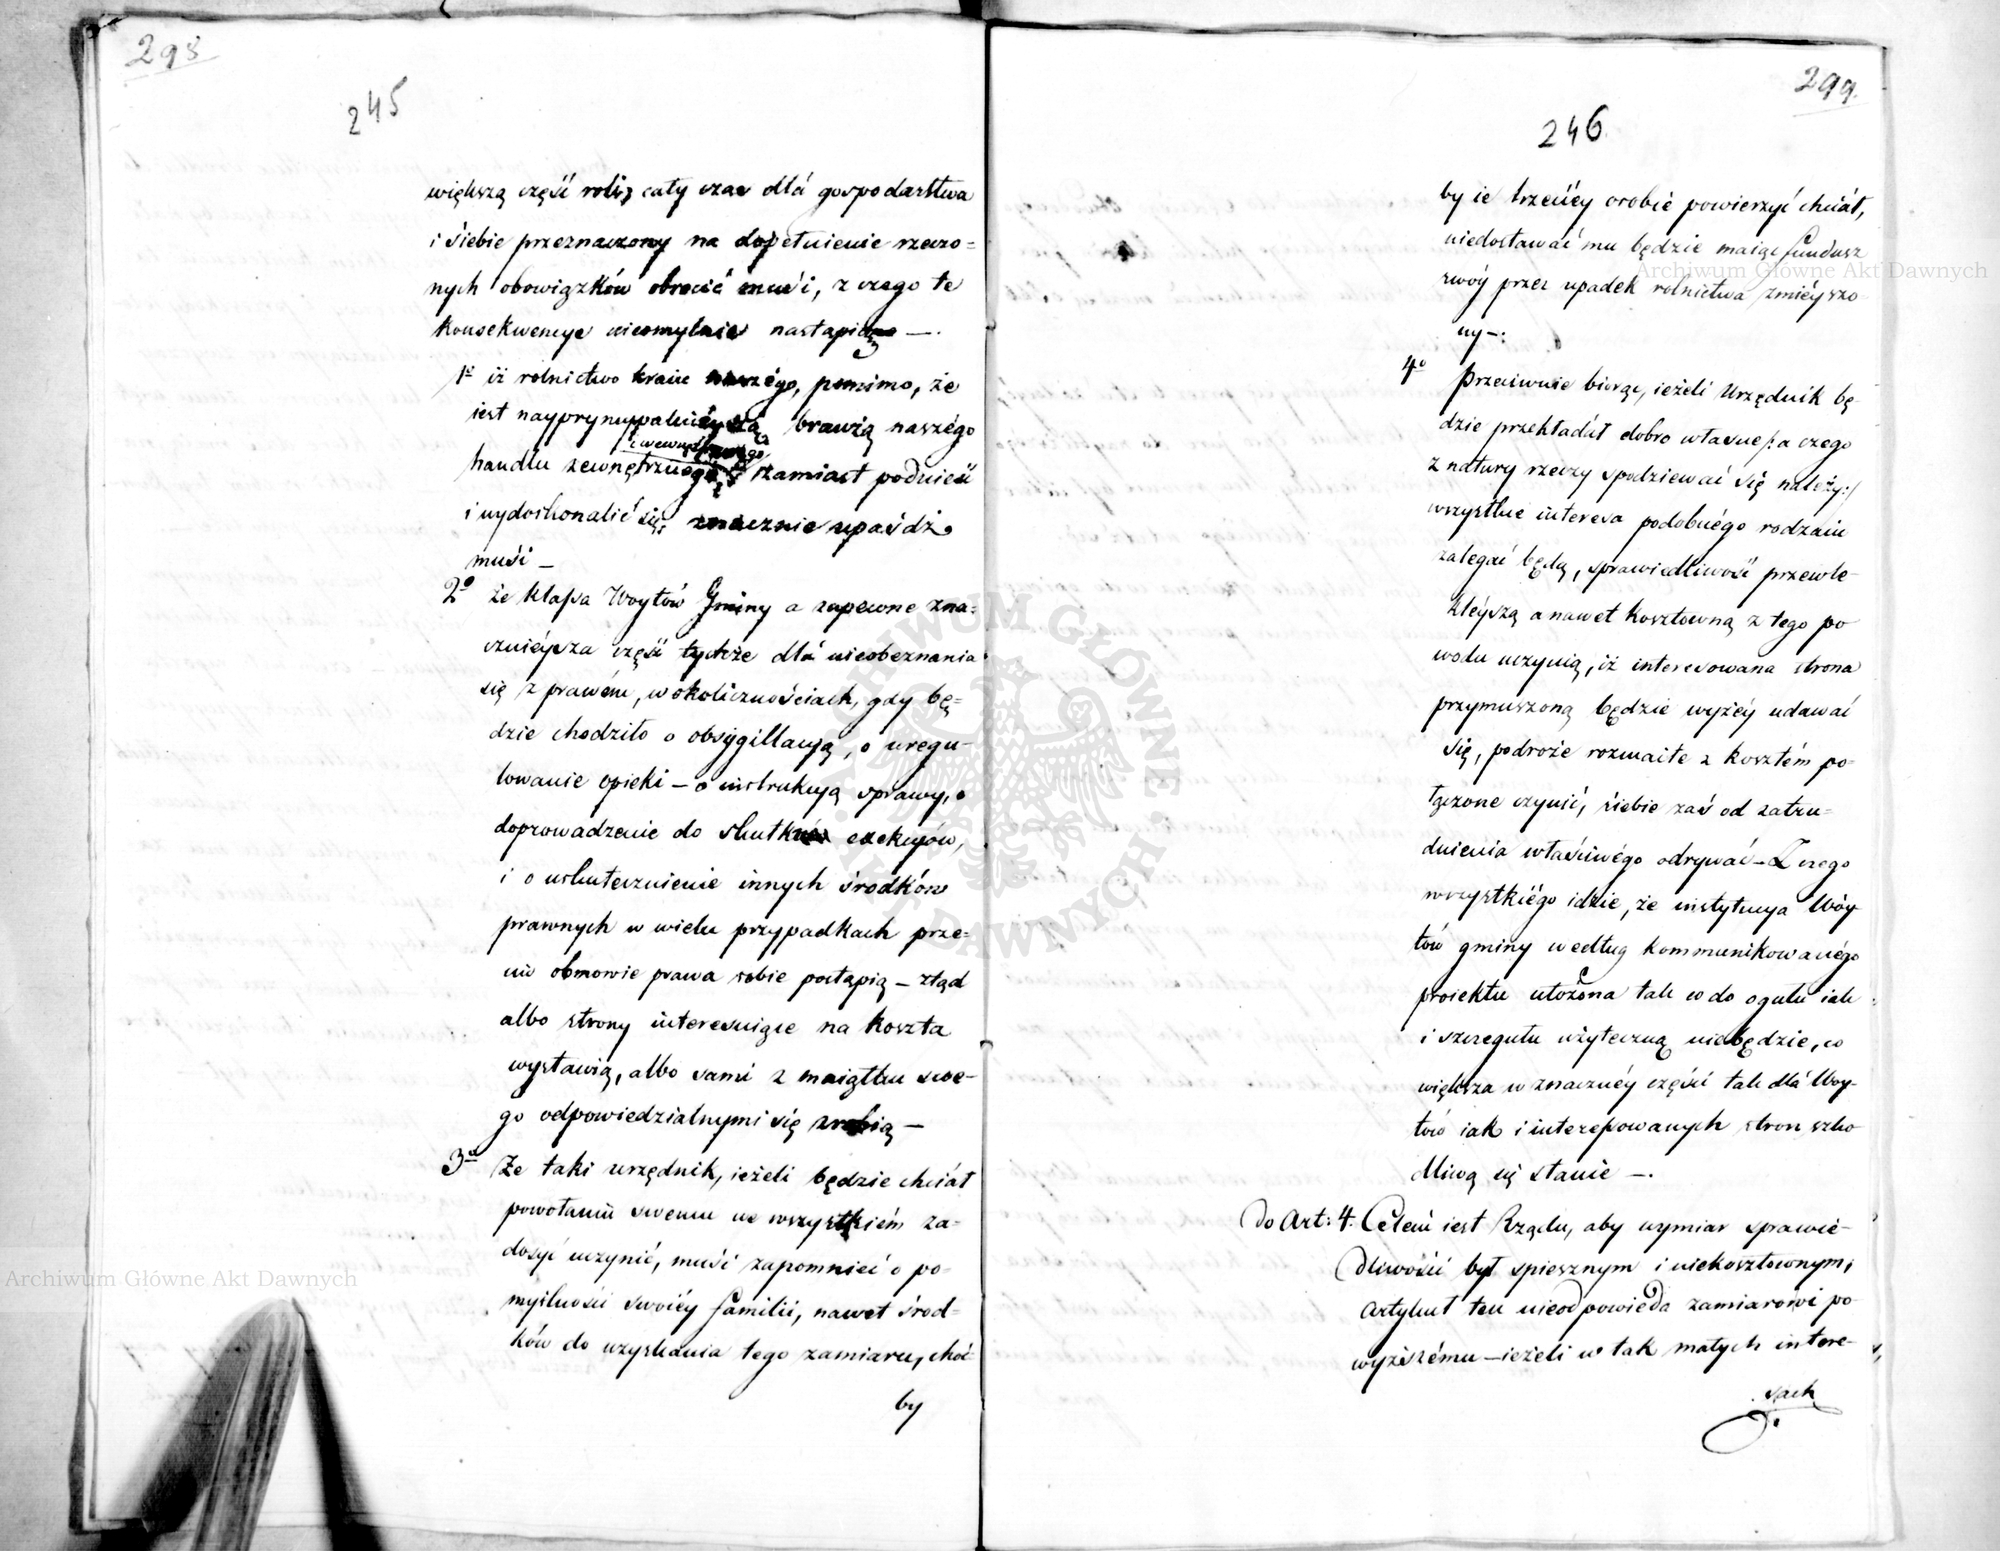 298
245
większą część roli, cały czas dlá gospodarstwa
i siebie przeznaczony na dopełnienie rzeczo=
nych obowiązków obrocić musi, z czego te
konsekwencye nieomylnie nastąpią —.
1º iż rolnictwo kraiu naszégo, pomimo, że
iest naypryncypalnieyszą branżą naszégo
i wewnętrznego
handlu zewnętrznego zamiast podnieść
i wydoskonalić się, znacznie upaśdź
musi —
2º że klassa Woytów Gminy a zapewne zna=
cznieysza część tychże dlá nieobeznania
się z prawém, w okolicznościach, gdy bę=
dzie chodziło o obsygillacyą, o uregu-
lowanie opieki — o instrukcyą sprawy, o
doprowadzenie do skutków exekucyów,
i o uskutecznienie innych środków
prawnych w wielu przypadkach prze-
ciw osnowie prawa sobie postąpią — ztąd
albo strony interessuiące na koszta
wystawią, albo sami z maiątku swe-
go odpowiedzialnymi się zrobią —
3º Że taki urzędnik, ieżeli będzie chciáł
powołaniu swemu we wszystkiém za-
dosyć uczynić, musi zapomnieć o po-
myślności swoiéy familii, nawet środ-
ków do uzyskania tego zamiaru, choć-
by
299.
246
by ie trzeciéy osobie powierzyć chciáł,
niedostawać mu będzie maiąc fundusz
swóy przez upadek rolnictwa zmiéyszo
ny —:
4º Przeciwnie biorąc, ieżeli Urzędnik bę-
dzie przekładáł dobro własne /: a czego
z natury rzeczy spodziewać się należy :/
wszystkie interesa podobnégo rodzaiu
zalegać będą, sprawiedliwość przewle-
kléyszą a nawet kosztowną z tego po
wodu uczynią, iż interesowana strona
przymuszoną będzie wyżéy udawać
się, podroże rozmaite z kosztém po-
łączone czynić, siebie zaś od zatru-
dnienia właściwégo odrywać — Z czego
wszystkiégo idzie, że instytucya Wóy
tów gminy według kommunikowanégo
proiektu ułożona tak co do ogułu iak
i szczegułu użyteczną niebędzie, co
większa w znacznéy części tak dlá Woy-
tów iak i interessowanych stron szko
dliwą się stanie —.
Do Art: 4. Celem iest Rządu, aby wymiar sprawie-
dliwości był spiesznym i niekosztownym,
Artykuł ten nieodpowiedá zamiarowi po-
wyższému — ieżeli w tak małych intere-
sach
Archiwum Główne Akt Dawnych
Archiwum Główne Akt Dawnych
ARCHIWUM GŁÓWNE AKT DAWNYCH